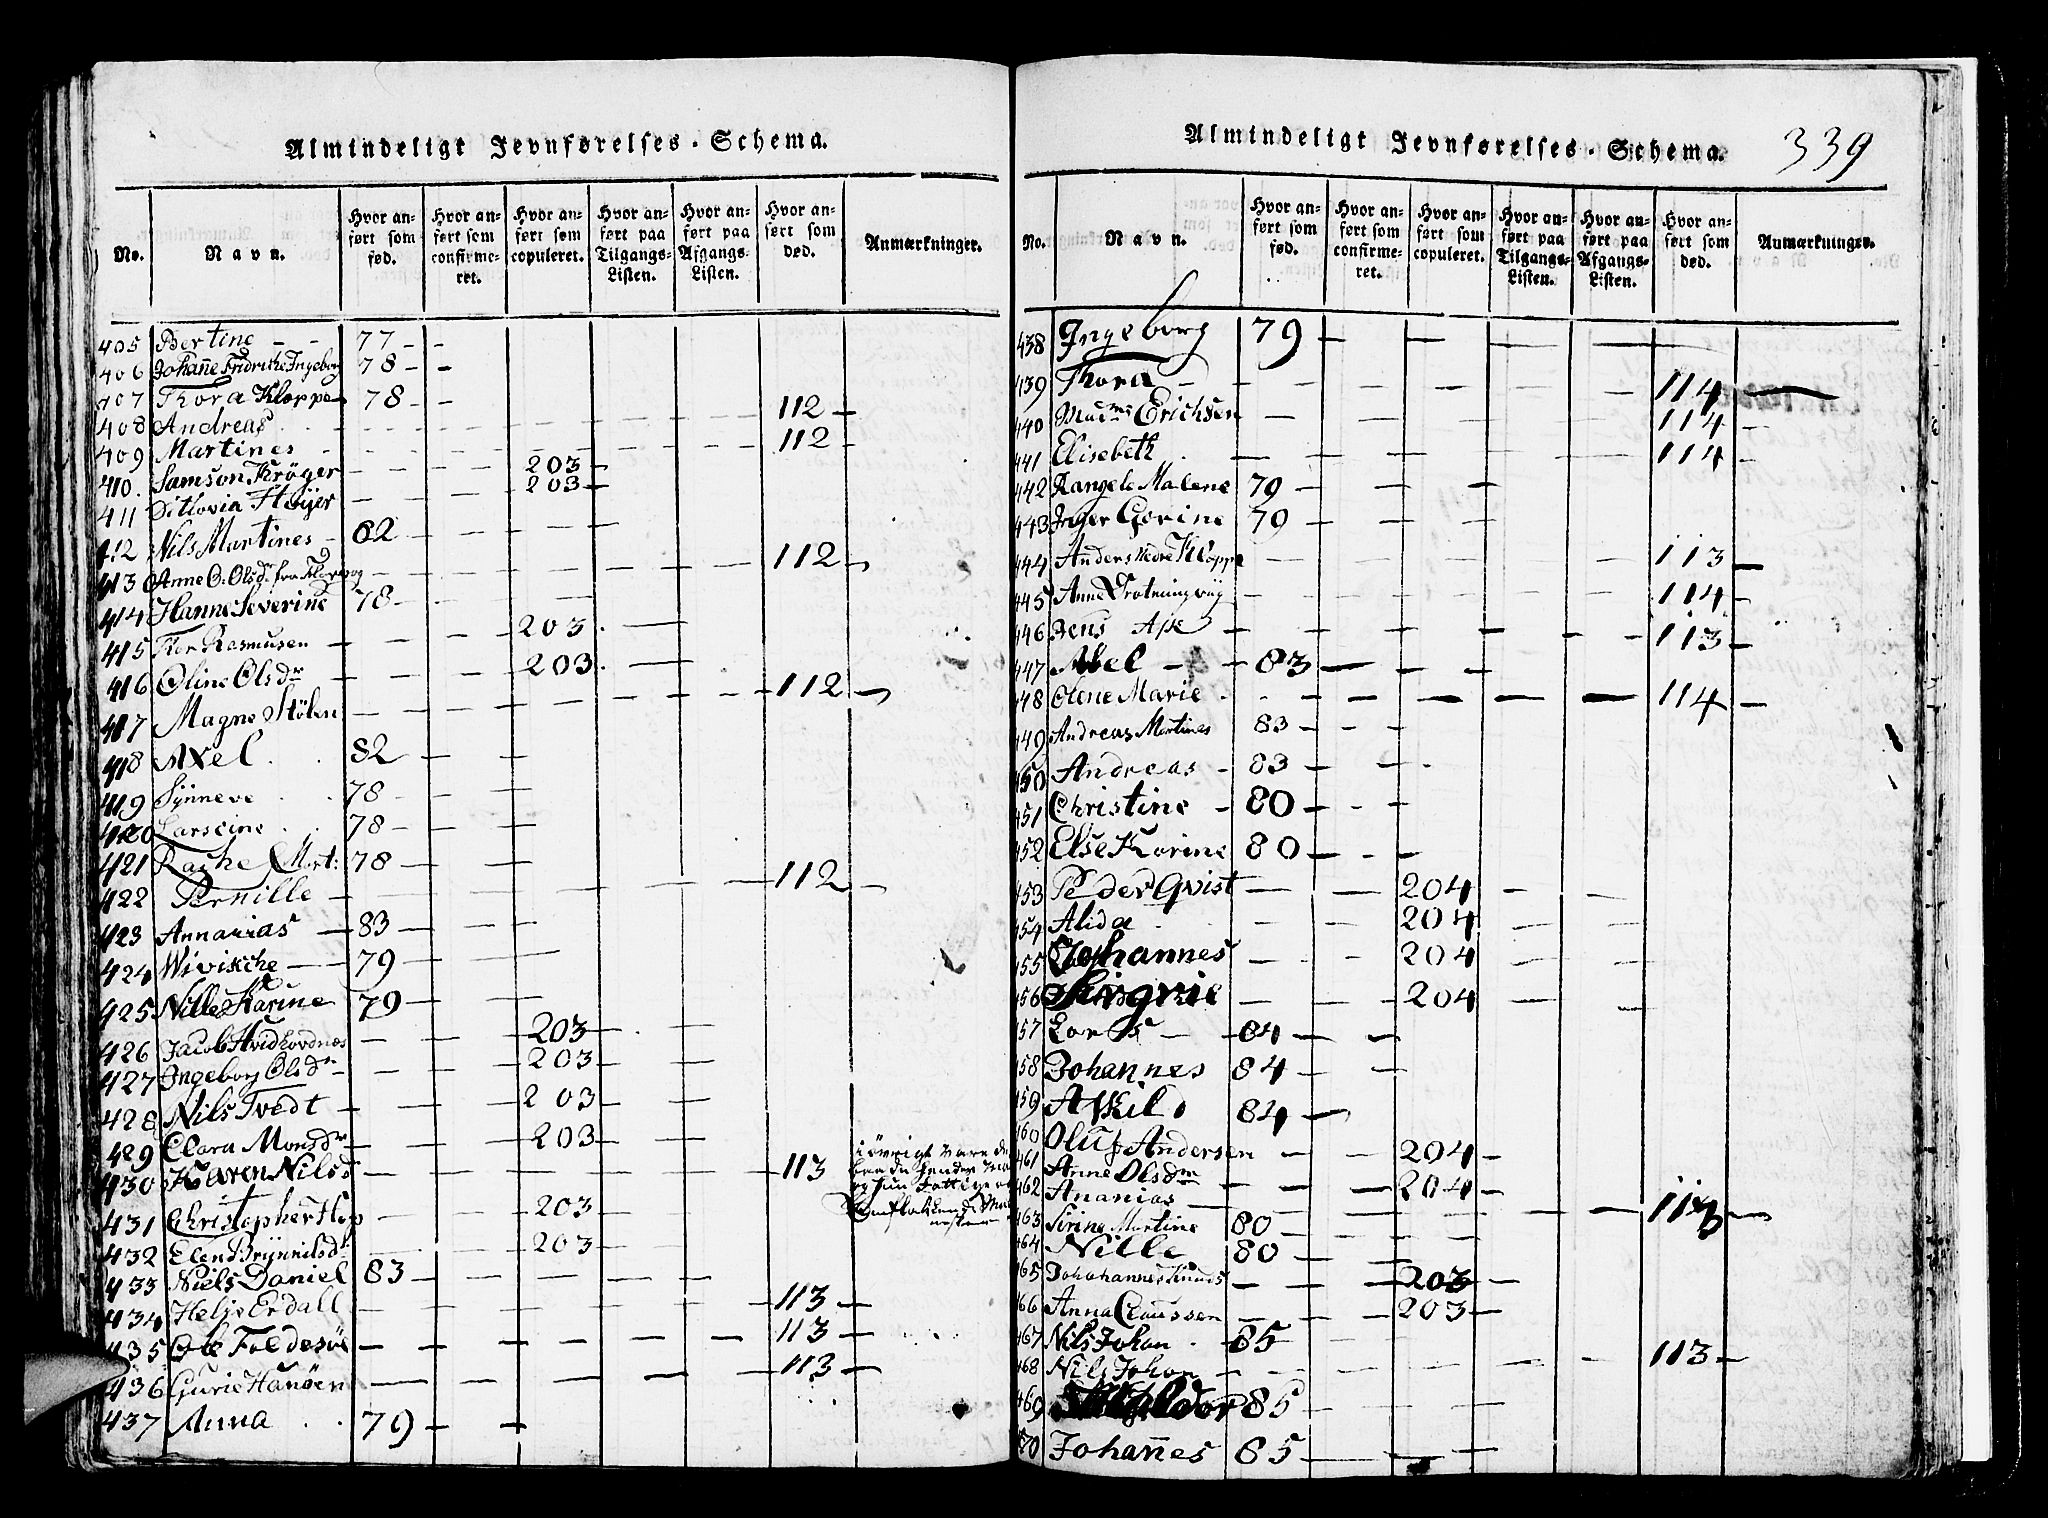 Almindeligt Jevnførelses-Schema.
No.
Navn.
Hvor anført som fød.
Hvor anført som confirmeret.
Hvor anført som copuleret.
Hvor anført paa Tilgangs-Listen.
Hvor anført paa Afgangs-Listen.
Hvor anført som død.
Anmærkninger.
405 Bertine - - 77 - -
406 Johanne Fridrikke Ingeborg 78 - -
407 Thora Kloppe 78 - -
408 Andreas 112 -
409 Martines 112 -
410. Samson Krøger 203 -
411 Ditlovia Høijer 203 -
412 Nils Martines - 82
413 Anne O: Olsdr fra 112 -
414 Hanne Severine 78 -
415 Tor Rasmusen 203. -
416 Oline Olsdr 203. -
417 Magne Stölen 112 -
418 Axel 82
419 Synneve 78 -
420 Larseine 78 -
421 Rachel Mort: 78 -
422 Pernille - 112 -
423 Annanias - 83 -
424 Wivikche - 79 -
425 Nille Karine 79 -
426 Jacob Hvid 203 -
427 Ingeborg Olsdr 203
428 Nils Tvedt 203
429 Clara Monsdr 203
430 Karen Nilsd 113 i övrigt
431 Christopher Hop 203
432 Elen Brynnilsd 203
433 Niels Daniel 83 -
434 Helje Erdall 113 -
435 Ole Foldesöe 113 -
436 Gurie Hanöen 113 -
437 Anna 79 - -
Almindeligt Jevnførelses-Schema.
339
No.
Navn.
Hvor anført som fød.
Hvor anført som confirmeret.
Hvor anført som copuleret.
Hvor anført paa Tilgangs-Listen.
Hvor anført paa Afgangs-Listen.
Hvor anført som død.
Anmærkninger.
438 Ingeborg 79 -
439 Thora 114 -
440 Madme Erichsen 114 -
441 Elisebeth 114 -
442 Rangele Malene 79 -
443 Inger Gorine 79 -
444 Anders Kloppe 113 -
445 Anne 114 -
446 Jens Aße 113 -
447 Abel - 83 -
448 Olene Marie 114 -
449 Andreas Martines 83 -
450 Andreas - 83 -
451 Christine - 80 -
452 Else Korine 80 -
453 Peder Qvist 204 -
454 Alida 204
455 Johannes 204
456 Sirgrie 204 -
457 Lars - 84 -
458 Johannes 84 -
459 Askil 84 -
460 Oluf Andersen 204 -
461 Anne Olsdr 204 -
462 Ananias 113 -
463 Sirine Martine 80 -
464 Nille 80 -
465 Johahannes Knuds 203 -
466 Anna Claussen 203 -
467 Nils Johan 85
468 Nils Johan 113 -
469 Haldor 85 -
470 Johannes 85 -